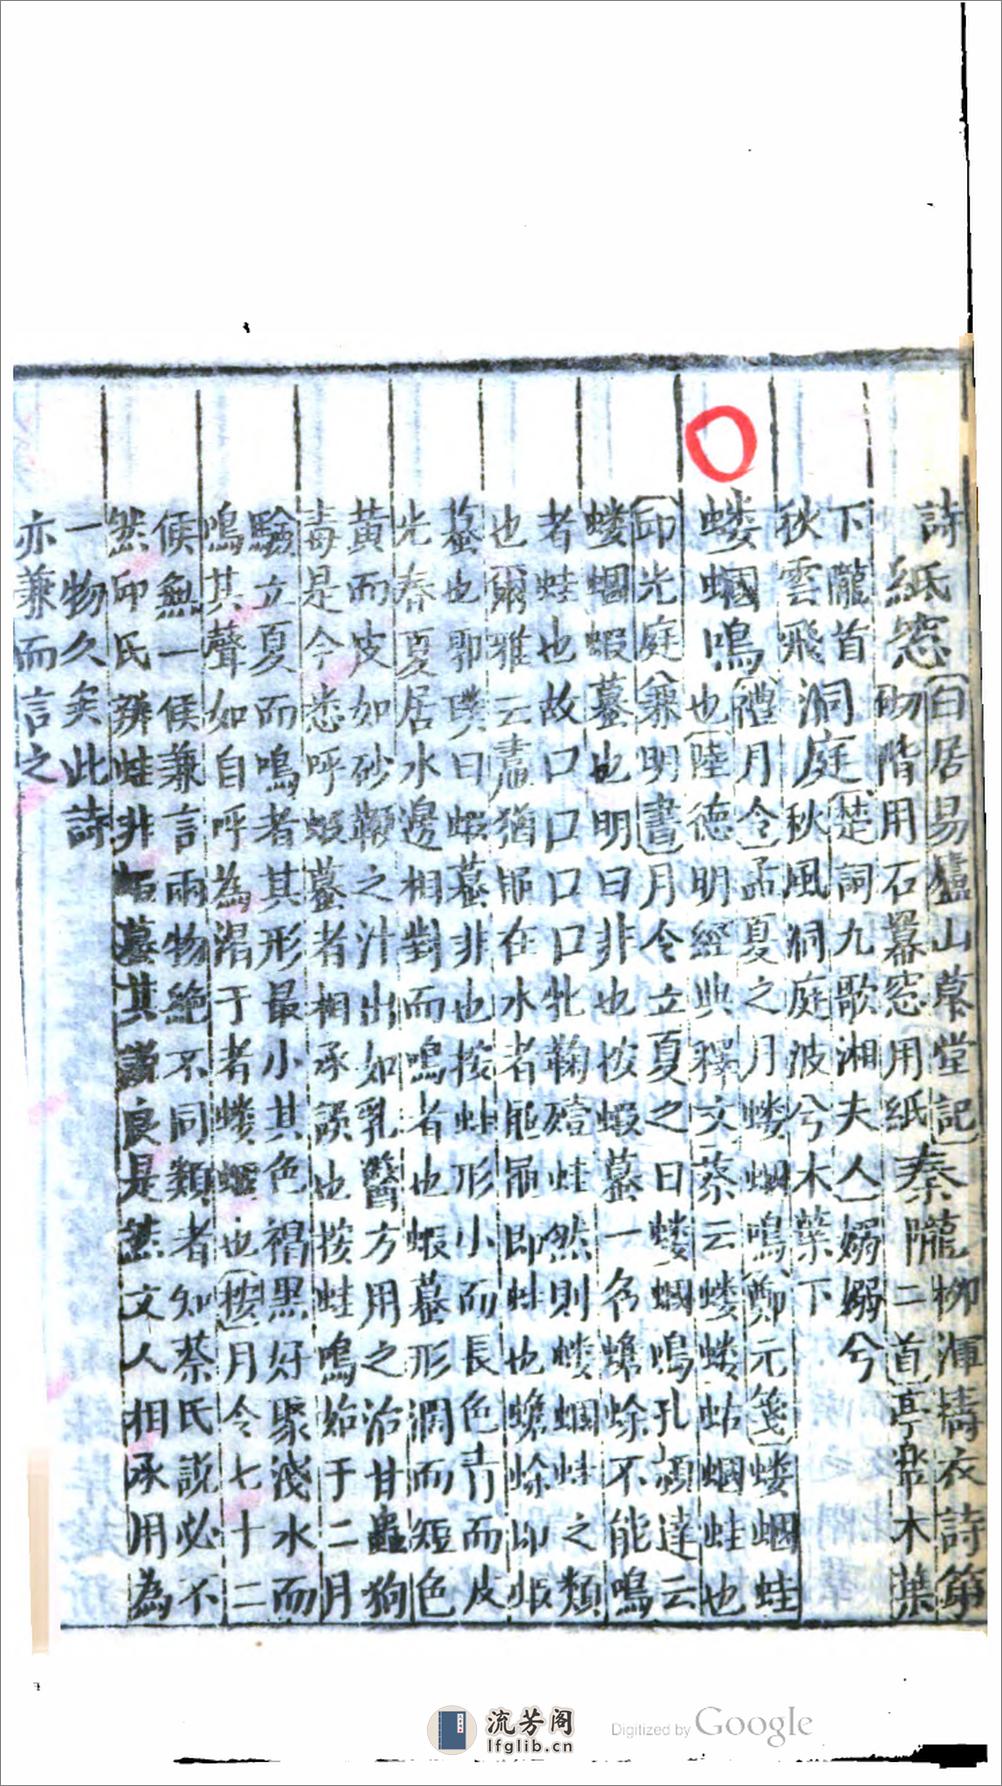 詩紙窓白居易廬山草堂記
砌階用石冪窓用紙
秦隴柳渾擣衣詩第
二首亭皋木葉
下隴首
秋雲飛
洞庭楚詞九歌湘夫人嫋嫋兮
秋風洞庭波兮木葉下
螻蟈鳴禮月令孟夏之月螻蟈鳴鄭元箋螻蟈蛙
也陸德明經典釋文蔡云螻螻蛄蟈蛙也
邱光庭兼明書月令立夏之日螻蟈鳴孔頴達云
螻蟈蝦蟇也明曰非也按蝦蟇一名蟾蜍不能鳴
者蛙也故口口口口牝鞠蛙然則螻蟈蛙之類
也爾雅云猶在水者黽即蛙也蟾蜍即蝦
蟇也郭璞曰蝦蟇非也按蛙形小而長色青而皮
光春夏居水邊相對而鳴者也蝦蟇形濶而短色
黃而皮如砂鞭之汁出如乳醫方用之治甘蟲狗
毒是今悉呼蝦蟇者相承誤也按蛙鳴始于二月
驗立夏而鳴者其形最小其色褐黑好聚淺水而
鳴其聲如自呼為渴于者螻蟈也按月令七十二
候無一候兼言兩物絕不同類者知蔡氏說必不
然邱氏辨蛙非蟇其良是然文人相承用為
一物久矣此詩
亦兼而言之
流芳阁
lfglib.cn
Digitized by Google